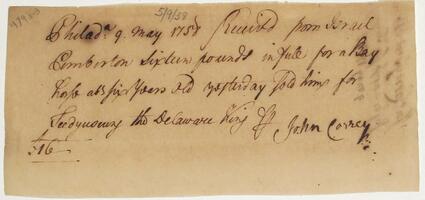 5/9/58
Philad.ᵃ 9. May 1758 Receivd from Israel
Pemberton Sixteen pounds in full for a Bay
horse abt six Years old yesterday Sold him for
Teedyuscung the Delaware King ⅌ John Correy
£16